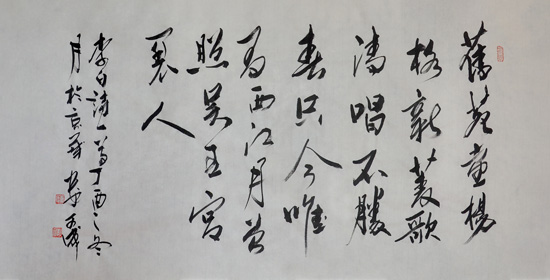 舊苑臺楊
柳新菱歌
清唱不勝
春只今唯
有西江月曾
照吴王宫
裏人
李白詩一首丁酉之冬
月於京華